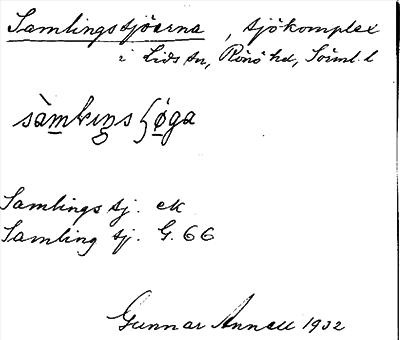 Samlingssjöarna, sjökomplex
i Lids sn, Rönö hd, Söml. l
Samlings sj. ek
Samling sj. G. 66
Gunnar Annell 1932